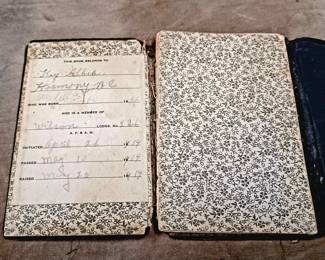 THIS BOOK BELONGS TO
Harmony N.C.
WHO WAS BORN
AND IS A MEMBER OF
Wilson LODGE No. 226
A. F. & A. M.
INITIATED April 26 1919
PASSED May 10 1919
RAISED May 20 1919